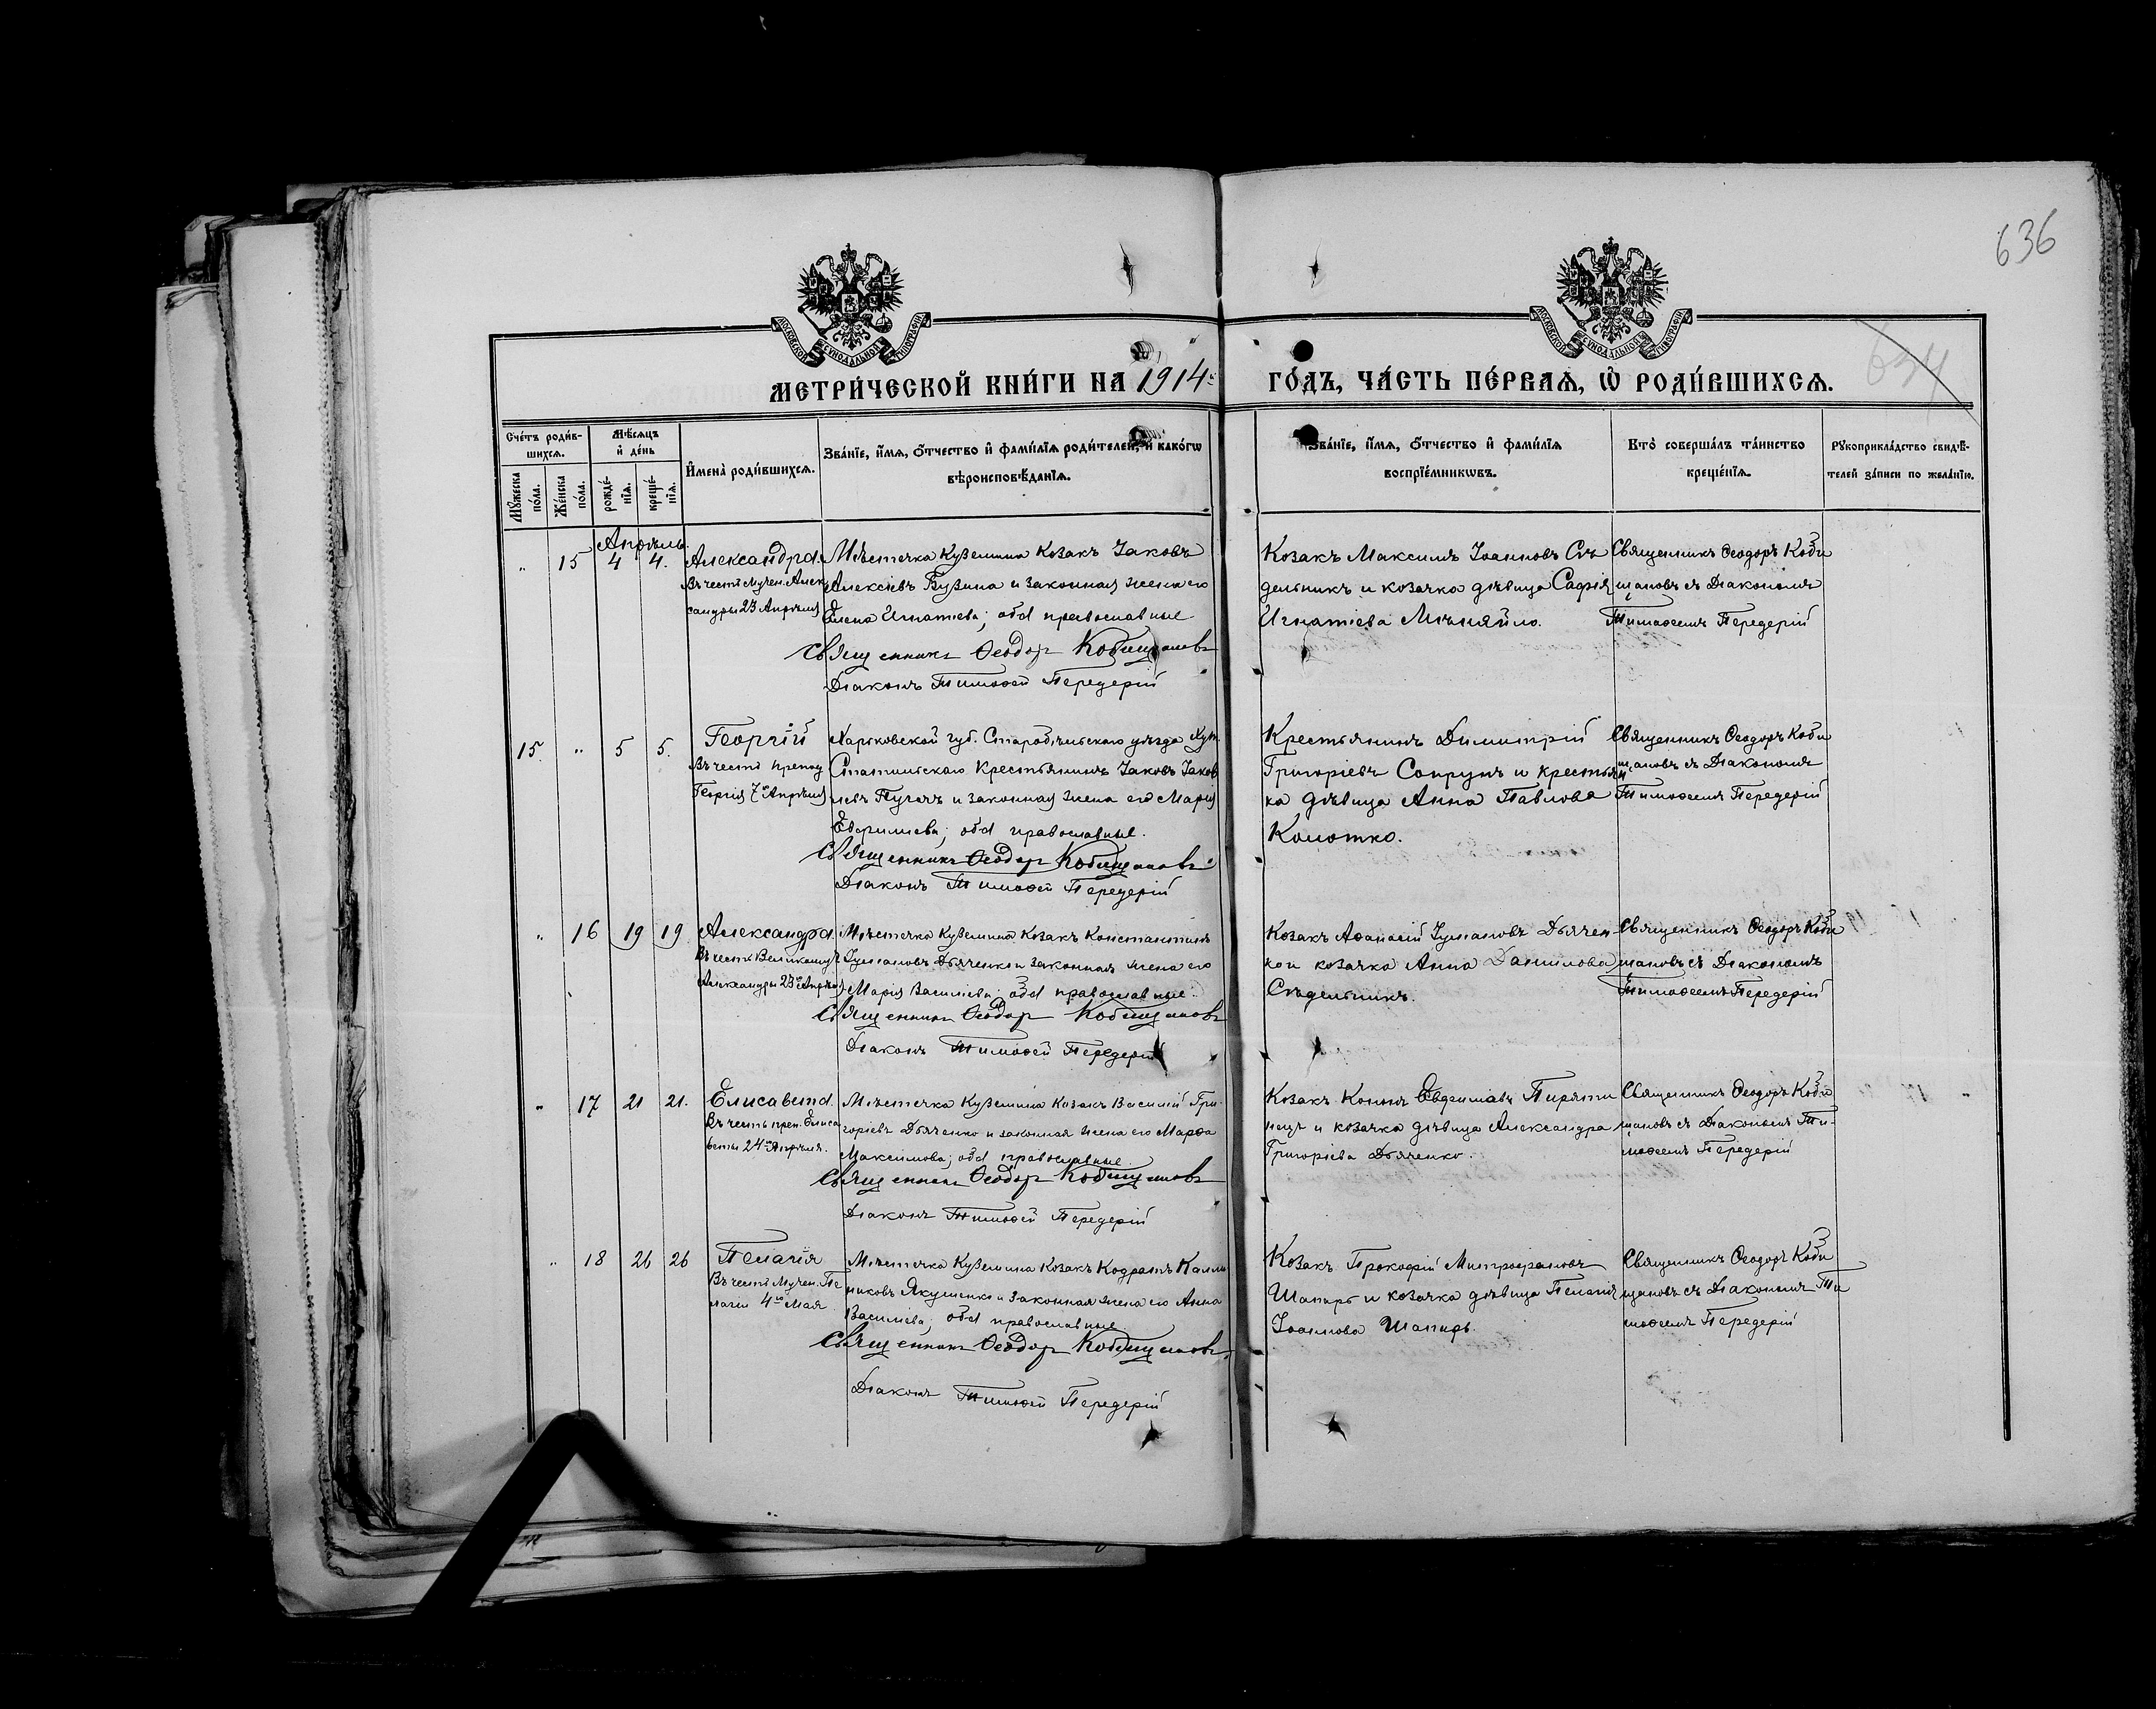 636
634
МОСКОВСКОЙ СѴНОДАЛЬНОЙ ТИПОГРАФІИ
МОСКОВСКОЙ СѴНОДАЛЬНОЙ ТИПОГРАФІИ
МЕТРИ́ЧЕСКОЙ КНИ́ГИ НА 1914 ГО́ДЪ, ЧА́СТЬ ПЕ́РВАѦ, Ѡ҆ РОДИ́ВШИХСѦ.
Сче́тъ роди́в-
шихсѧ.
Мꙋ́жеска по́ла.
Же́нска по́ла.
Мѣ́сѧцъ
и҆ де́нь
рожде́-
нїѧ.
креще́-
нїѧ.
И҆мена̀ роди́вшихсѧ.
Зва́нїе, и҆́мѧ, ѻ҆́тчество и҆ фами́лїѧ роди́телей, и҆ како́гѡ
вѣроисповѣ́данїѧ.
Зва́нїе, и҆́мѧ, ѻ҆́тчество и҆ фами́лїѧ
воспрїе́мникѡвъ.
Кто̀ соверша́лъ та́инство
креще́нїѧ.
Рꙋкоприкла́дство свидѣ́-
телей за́писи по жела́нїю.
Апрѣль
" 15 4 4.
Александра.
Въ честь Мучен. Алек
сандры 23 Апрѣля
Мѣстечка Куземина Козакъ Іаковъ
Алексѣевъ Бузина и законная жена его
Елена Игнатіева; оба православные
Священникъ Ѳеодоръ Кобищановъ
Діаконъ Тимоѳей Передерій
Козакъ Максимъ Іоанновъ Сѣ
дельникъ и козачка дѣвица Софія
Игнатіева Мѣняйло.
Священникъ Ѳеодоръ Коби
щановъ съ Діакономъ
Тимоѳеемъ Передерій
15. " 5 5.
Георгій
Въ честь препод
Георгія 7го Апрѣля
Харьковской губ. Старобѣльскаго уѣзда Хут.
Крестьянинъ Іаковъ Іаков
левъ Пугачъ и законная жена его Марія
Евфиміева; оба православные.
Священникъ Ѳеодоръ Кобищановъ
Діаконъ Тимоѳей Передерій
Крестьянинъ Димитрій
Григоріевъ Сопрунъ и крестьян
ка дѣвица Анна Павлова
Колотко.
Священникъ Ѳеодоръ Коби
щановъ съ Діакономъ
Тимоѳеемъ Передерій
" 16 19 19
Александра.
Въ честь Великомуч
Александры 23го Апрѣля
Мѣстечка Куземина Козакъ Константинъ
Іуліановъ Дьяченко и законная жена его
Марія Василіева; оба православные.
Священникъ Ѳеодоръ Кобищановъ
Діаконъ Тимоѳей Передерій
Козакъ Аѳанасій Іуліановъ Дьячен
ко и козачка Анна Данилова
Сѣдельникъ.
Священникъ Ѳеодоръ Коби
щановъ съ Діакономъ
Тимоѳеемъ Передерій
" 17 21 21.
Елисавета.
Въ честь преп. Елиса
веты 24го Апрѣля.
Мѣстечка Куземина Козакъ Василій Гри-
горіевъ Дьяченко и законная жена его Марѳа
Максимова; оба православные
Священникъ Ѳеодоръ Кобищановъ
Діаконъ Тимоѳей Передерій
Козакъ Кононъ Евфиміевъ Пиряти
нецъ и козачка дѣвица Александра
Григоріева Дьяченко.
Священникъ Ѳеодоръ Коби
щановъ съ Діакономъ Ти-
моѳеемъ Передерій
" 18 26 26
Пелагія
Въ честь Мучен. Пе
лагіи 4го Мая
Мѣстечка Куземина Козакъ Кодратъ Калли
никовъ Якушенко и законная жена его Анна
Василіева; оба православные.
Священникъ Ѳеодоръ Кобищановъ
Діаконъ Тимоѳей Передерій
Козакъ Прокофій Митрофановъ
Шапарь и козачка дѣвица Пелагія
Іоаннова Шапарь.
Священникъ Ѳеодоръ Коби
щановъ съ Діакономъ Ти
моѳеемъ Передерій